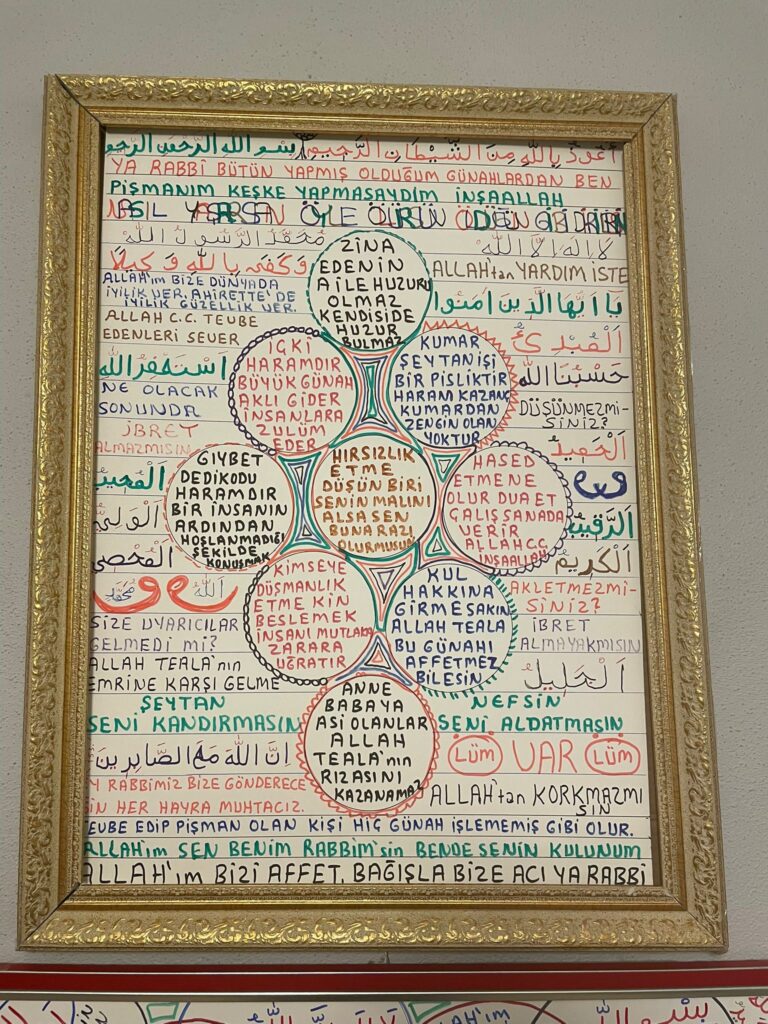 اَعُوذُ بِاللهِ مِنَ الشَّيْطَانِ الرَّجِيمِ بِسْمِ اللهِ الرَّحْمٰنِ الرَّحِيمِ
YA RABBİ BÜTÜN YAPMIŞ OLDUĞUM GÜNAHLARDAN BEN
PİŞMANIM KEŞKE YAPMASAYDIM İNŞAALLAH
لَا اِلٰهَ اِلَّا اللهُ مُحَمَّدُ الرَّسُولُ اللهُ
وَكَفٰى بِاللهِ وَكِيلًا
ALLAH'ım BİZE DÜNYADA
İYİLİK VER. AHİRETTE'DE
İYİLİK GÜZELLİK VER.
ALLAH C.C. TEUBE
EDENLERİ SEUER
اَسْتَغْفِرُ اللهَ
NE OLACAK
SONUNDA
İBRET
ALMAZMISIN
اَلْمُجِيبُ
اَلْوَلِيُّ
اَلْمُحْصِى
اَللهُ
مُحَمَّد
و و
SİZE UYARICILAR
GELMEDİ Mİ?
ALLAH TEALA'nın
EMRİNE KARŞI GELME
ŞEYTAN
SENİ KANDIRMASIN
اِنَّ اللهَ مَعَ الصَّابِرِينَ
Y RABBİMİZ BİZE GÖNDERECE
İN HER HAYRA MUHTACIZ.
ZİNA
EDENİN
AİLE HUZURU
OLMAZ
KENDİSİDE
HUZUR
BULMAZ
İÇKİ
HARAMDIR
BÜYÜK GÜNAH
AKLI GİDER
İNSANLARA
ZULÜM
EDER
KUMAR
ŞEYTAN İŞİ
BİR PİSLİKTİR
HARAM KAZANÇ
KUMARDAN
ZENGİN OLAN
YOKTUR
GIYBET
DEDİKODU
HARAMDIR
BİR İNSANIN
ARDINDAN
HOŞLANMADIĞI
ŞEKİLDE
KONUŞMAK
HIRSIZLIK
ETME
DÜŞÜN BİRİ
SENİN MALINI
ALSA SEN
BUNA RAZI
OLURMUSUN
HASED
ETMENE
OLUR DUA ET
ÇALIŞ SANADA
VERİR
ALLAH C.C.
İNŞAALLAH
KİMSEYE
DÜŞMANLIK
ETME KİN
BESLEMEK
İNSANI MUTLAKA
ZARARA
UĞRATIR
KUL
HAKKINA
GİRME SAKIN
ALLAH TEALA
BU GÜNAHI
AFFETMEZ
BİLESİN
ANNE
BABAYA
ASİ OLANLAR
ALLAH
TEALA'nın
RIZASINI
KAZANAMAZ
ALLAH'tan YARDIM İSTE
يَا اَيُّهَا الَّذِينَ اٰمَنُوا
اَلْمُبْدِئُ
حَسْبُنَا اللهُ
DÜŞÜNMEZMİ-
SİNİZ?
اَلْحَمِيدُ
و و
اَلرَّقِيبُ
اَلْكَرِيمُ
AKLETMEZMİ-
SİNİZ?
İBRET
ALMAYAKMISIN
اَلْجَلِيلُ
NEFSİN
SENİ ALDATMASIN
LÜM VAR LÜM
ALLAH'tan KORKMAZMI
SIN
TEUBE EDİP PİŞMAN OLAN KİŞİ HİÇ GÜNAH İŞLEMEMİŞ GİBİ OLUR.
ALLAH'ım SEN BENİM RABBİM'sin BENDE SENİN KULUNUM
ALLAH'ım BİZİ AFFET. BAĞIŞLA BİZE ACI YA RABBİ